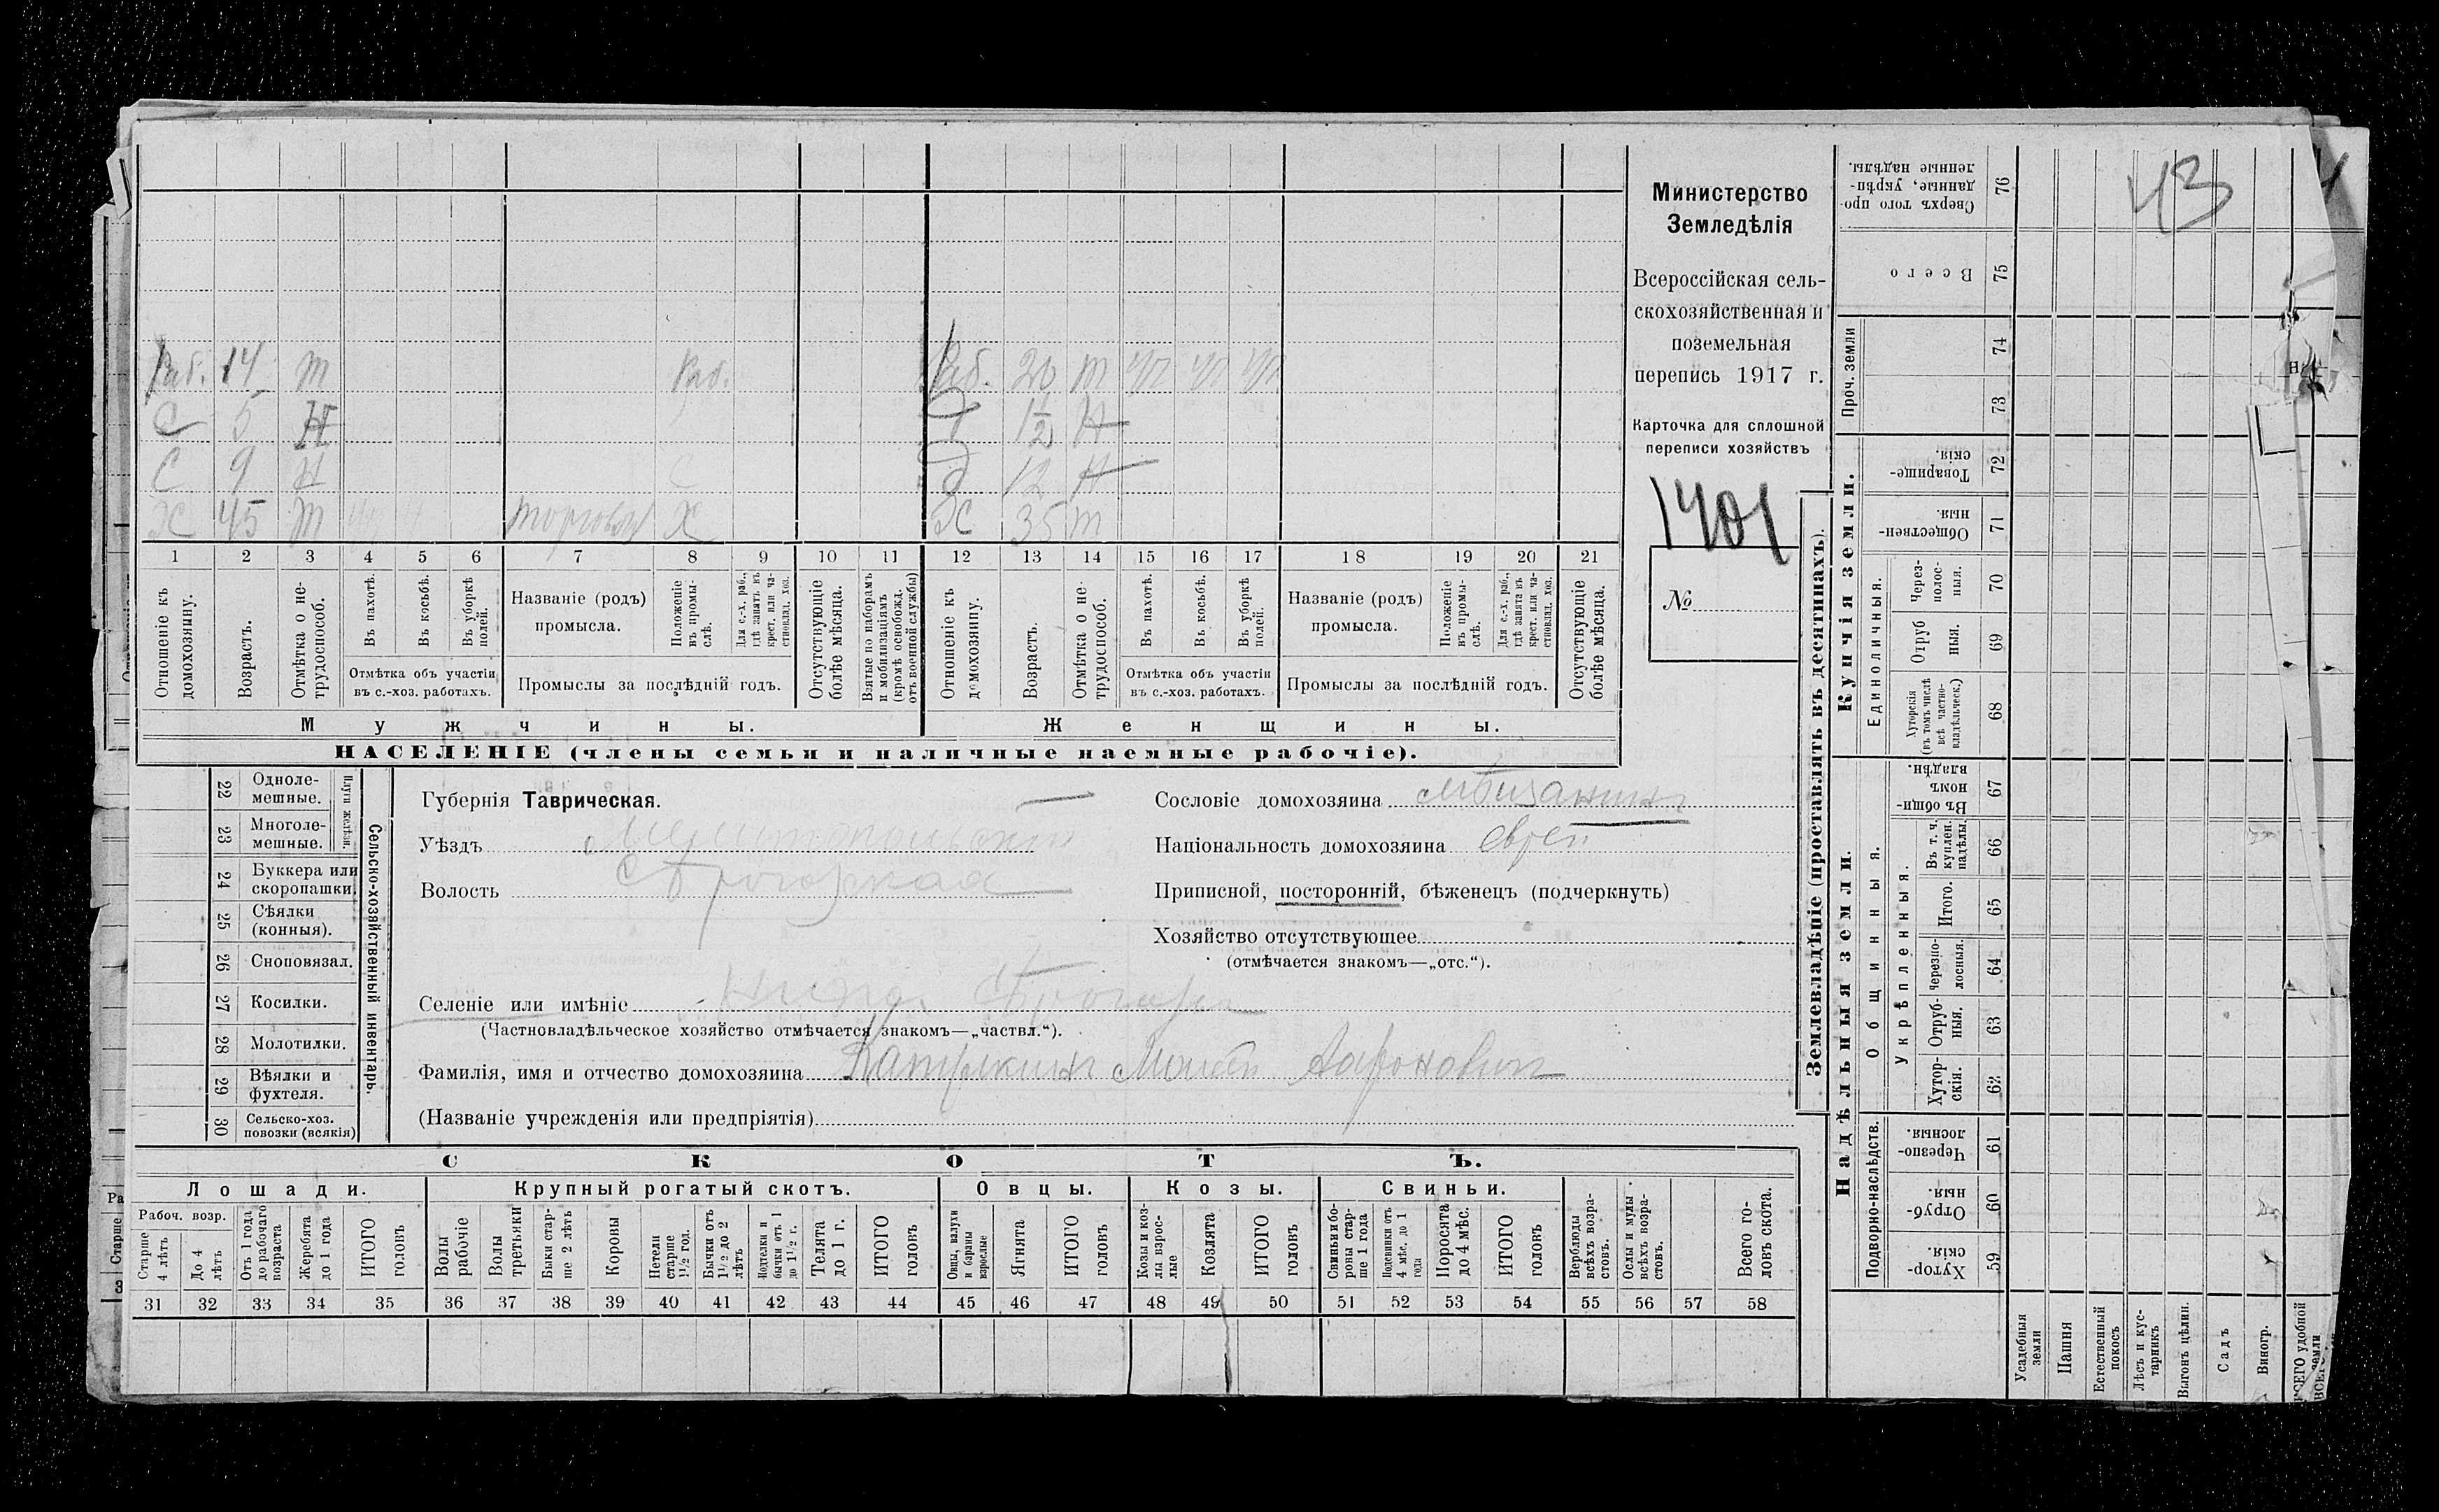 Министерство
Земледѣлія
Всероссійская сель-
скохозяйственная и
поземельная
перепись 1917 г.
Карточка для сплошной
переписи хозяйствъ
1401
№
43
Раб. 14 т Раб.
С 5 н
С 9 н
Х 45 т торговля Х
Раб. 20 т
Д 1/2 н
Д 12 н
Ж 35 т
1 2 3 4 5 6 7 8 9 10 11 12 13 14 15 16 17 18 19 20 21
Отношеніе къ домохозяину.
Возрастъ.
Отмѣтка о не-трудоспособ.
Въ пахотѣ.
Въ косьбѣ.
Въ уборкѣ полей.
Отмѣтка объ участіи
въ с.-хоз. работахъ.
Названіе (родъ)
промысла.
Положеніе въ промы-слѣ.
Для с.-х. раб., гдѣ занятъ въ крест. или ча-стновлад. хоз.
Промыслы за послѣдній годъ.
Отсутствующіе болѣе мѣсяца.
Взятые по наборамъ и мобилизаціямъ (кромѣ освобожд. отъ военной службы)
Отношеніе къ домохозяину.
Возрастъ.
Отмѣтка о не-трудоспособ.
Въ пахотѣ.
Въ косьбѣ.
Въ уборкѣ полей.
Отмѣтка объ участіи
въ с.-хоз. работахъ.
Названіе (родъ)
промысла.
Положеніе въ промы-слѣ.
Для с.-х. раб., гдѣ занята въ крест. или ча-стновлад. хоз.
Промыслы за послѣдній годъ.
Отсутствующіе болѣе мѣсяца.
Мужчины.
Женщины.
НАСЕЛЕНІЕ (члены семьи и наличные наемные рабочіе).
22 Одноле-мешные.
23 Многоле-мешные.
плуги желѣзн.
24 Буккера или скоропашки.
25 Сѣялки (конныя).
26 Сноповязал.
27 Косилки.
28 Молотилки.
29 Вѣялки и фухтеля.
30 Сельско-хоз. повозки (всякія)
Сельско-хозяйственный инвентарь.
Губернія Таврическая.
Уѣздъ Мелитопольскій
Волость
Селеніе или имѣніе
(Частновладѣльческое хозяйство отмѣчается знакомъ—„частвл.“).
Фамилія, имя и отчество домохозяина Аароновичъ
(Названіе учрежденія или предпріятія)
Сословіе домохозяина мѣщанинъ
Національность домохозяина еврей
Приписной, посторонній, бѣженецъ (подчеркнуть)
Хозяйство отсутствующее
(отмѣчается знакомъ—„отс.“).
СКОТЪ.
Лошади.
Крупный рогатый скотъ.
Овцы.
Козы.
Свиньи.
Рабоч. возр.
Старше 4 лѣтъ
До 4 лѣтъ
Отъ 1 года до рабочаго возраста
Жеребята до 1 года
ИТОГО головъ
Волы рабочіе
Волы третьяки
Быки стар-ше 2 лѣтъ
Коровы
Нетели старше 1½ год.
Бычки отъ 1½ до 2 лѣтъ
Подтелки и бычки отъ 1 до 1½ г.
Телята до 1 г.
ИТОГО головъ
Овцы, валухи и бараны взрослые
Ягнята
ИТОГО головъ
Козы и коз-лы взрос-лые
Козлята
ИТОГО головъ
Свиньи и бо-ровы стар-ше 1 года
Подсвинки отъ 4 мѣс. до 1 года
Поросята до 4 мѣс.
ИТОГО головъ
Верблюды всѣхъ возра-стовъ.
Ослы и мулы всѣхъ возра-стовъ.
Всего го-ловъ скота.
31 32 33 34 35 36 37 38 39 40 41 42 43 44 45 46 47 48 49 50 51 52 53 54 55 56 57 58
Землевладѣніе (проставлять въ десятинахъ).
Купчія земли.
Надѣльныя земли.
Сверхъ того про-данные, укрѣп-ленные надѣлы. 76
Всего 75
Проч. земли 74
73
Товарище-скія. 72
Обществен-ныя. 71
Единоличныя.
Через-полос-ныя. 70
Отруб-ныя. 69
Хуторскія (въ томъ числѣ всѣ частно-владѣльческ.) 68
Общинныя.
Въ общин-номъ владѣн. 67
Укрѣпленныя.
Въ т. ч. куплен. надѣлы. 66
Итого. 65
Черезпо-лосныя. 64
Отруб-ныя. 63
Хутор-скія. 62
Подворно-наслѣдств.
Черезпо-лосныя. 61
Отруб-ныя. 60
Хутор-скія. 59
Усадебныя земли
Пашня
Естественный покосъ
Лѣсъ и кус-тарникъ
Выгонъ цѣлин.
Садъ
Виногр.
ВСЕГО удобной земли